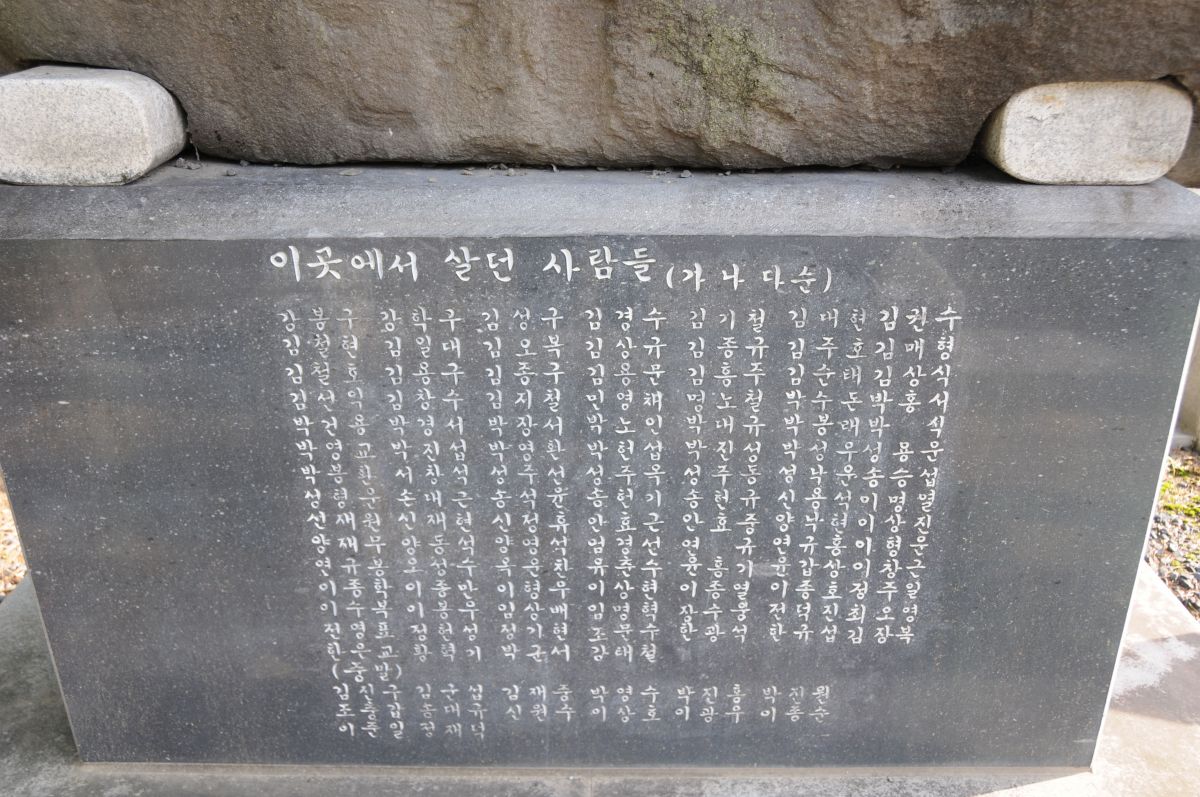 이곳에서 살던 사람들 (가나다순)
강봉구 강학구 김성구 김경수 김기철 김대현 김권수
김철현 김일대 김오복 김상규 김종규 김주호 김매형
김철호 김용구 김종구 김용문 김흥주 김순태 김상식
김선익 김창수 김지철 민영채 명노철 박수돈 박홍서
박건용 박경서 박장서 박노인 박대규 박봉태 박 석
박영교 박진섭 박영환 박헌섭 박진성 박성우 성용문
박봉환 서창석 성주선 성주옥 성주동 성낙운 송승섭
성형운 손대근 송석윤 송헌기 송헌규 신용석 이명열
선재원 신재현 신정휴 안효근 안호중 양낙현 이상진
양재무 양동석 양영석 엄경선 연 규 연규홍 이형문
연규봉 옥성수 유춘수 윤홍기 윤갑상 이창근
이종학 이종만 이형우 이상현 이종열 이종호 정주일
이수복 이봉우 임상배 임명혁 장수웅 전덕진 최오영
전영표 정헌성 정기현 조문수 한광석 한규섭 김장복
한은교 황혁기 박균서 강태철
(중말)
김신구 김군섭 김재중 박영수 박진홍 박진원
조홍갑 송대규 신원수 이상호 이광우 이흥순
이종일 정재덕